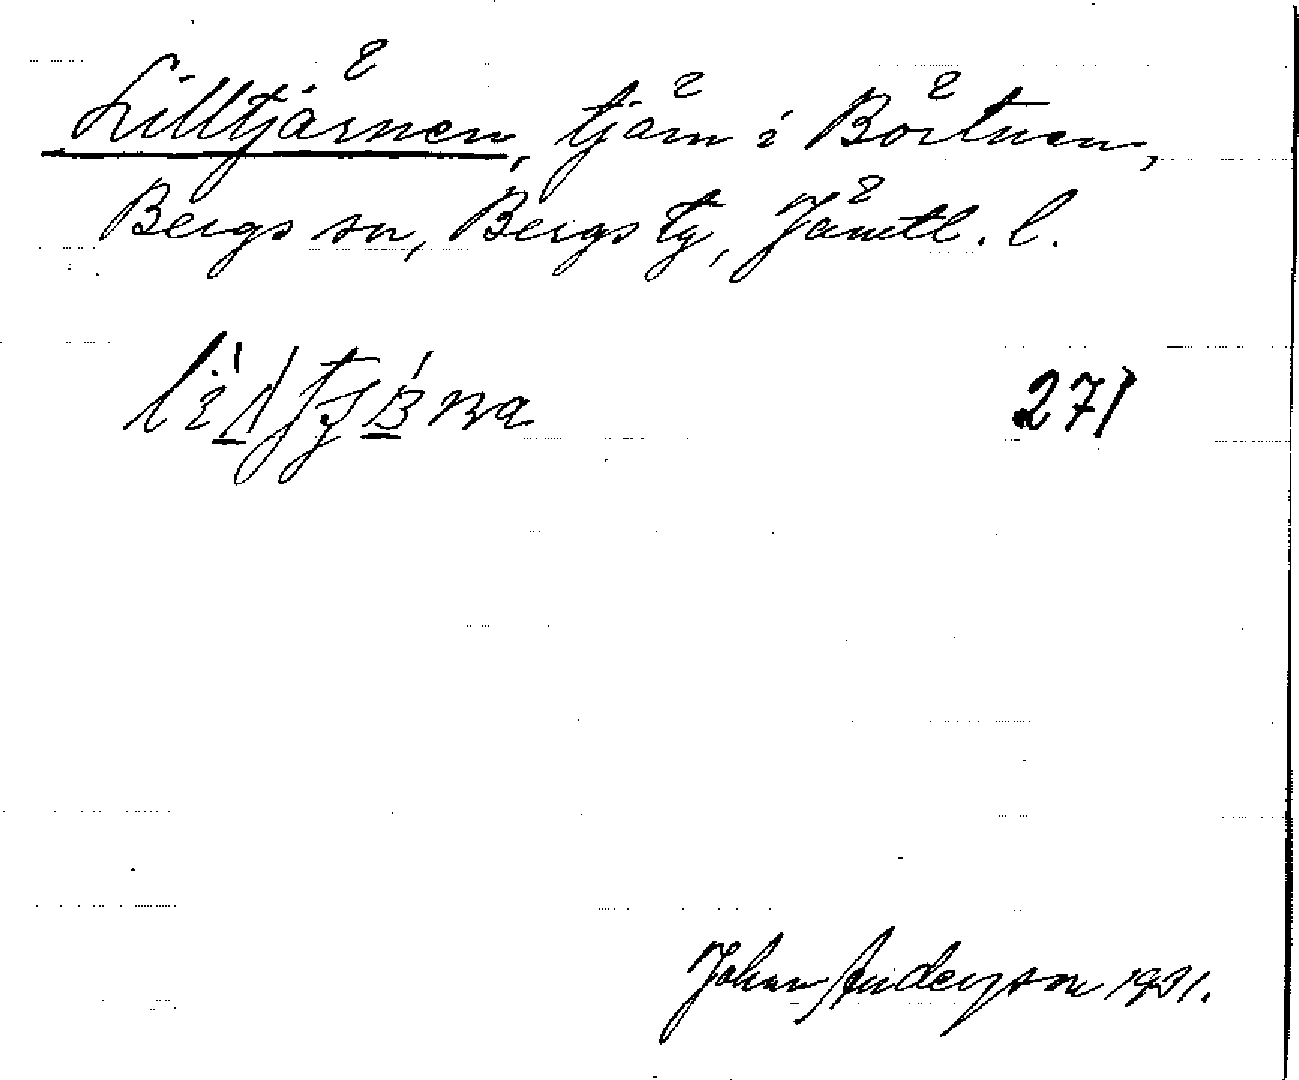 Lilltjärnen, tjärn i Börtnen,
Bergs sn, Bergs tg, Jämtl. l.
271
Johan Anderson 1931.